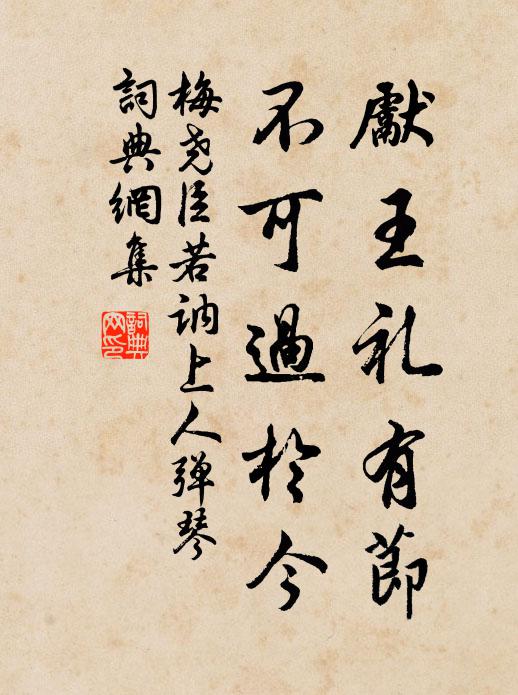 獻王礼有節
不可過於今
梅尧臣若訥上人弹琴
詞典網集
詞典网印